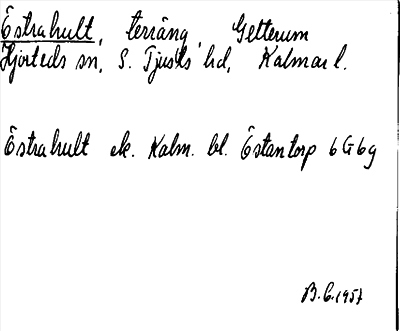 Östrahult, terräng, Getterum
Hjorteds sn, S. Tjusts hd, Kalmar l.
Östrahult ek. Kalm. bl. Östantorp 6G6g
B.C. 1957